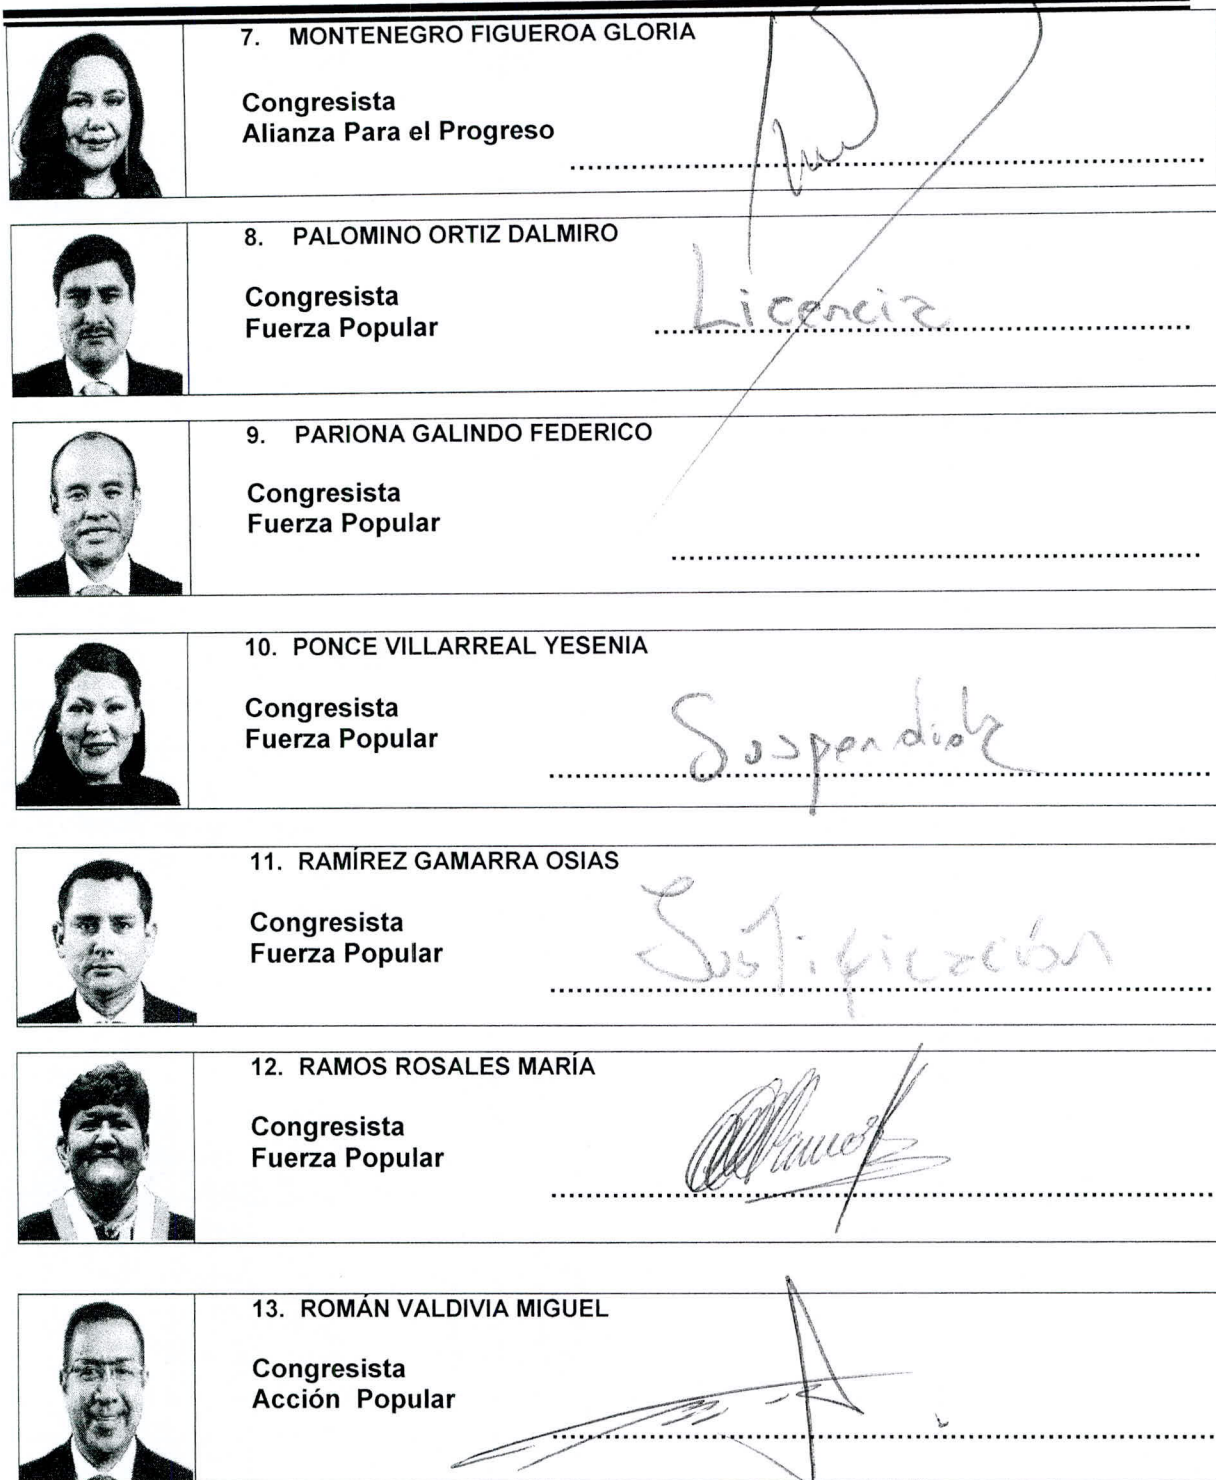 7. MONTENEGRO FIGUEROA GLORIA
Congresista
Alianza Para el Progreso
8. PALOMINO ORTIZ DALMIRO
Congresista
Fuerza Popular
Licencia
9. PARIONA GALINDO FEDERICO
Congresista
Fuerza Popular
10. PONCE VILLARREAL YESENIA
Congresista
Fuerza Popular
Suspendida
11. RAMÍREZ GAMARRA OSIAS
Congresista
Fuerza Popular
Justificación
12. RAMOS ROSALES MARÍA
Congresista
Fuerza Popular
13. ROMÁN VALDIVIA MIGUEL
Congresista
Acción Popular